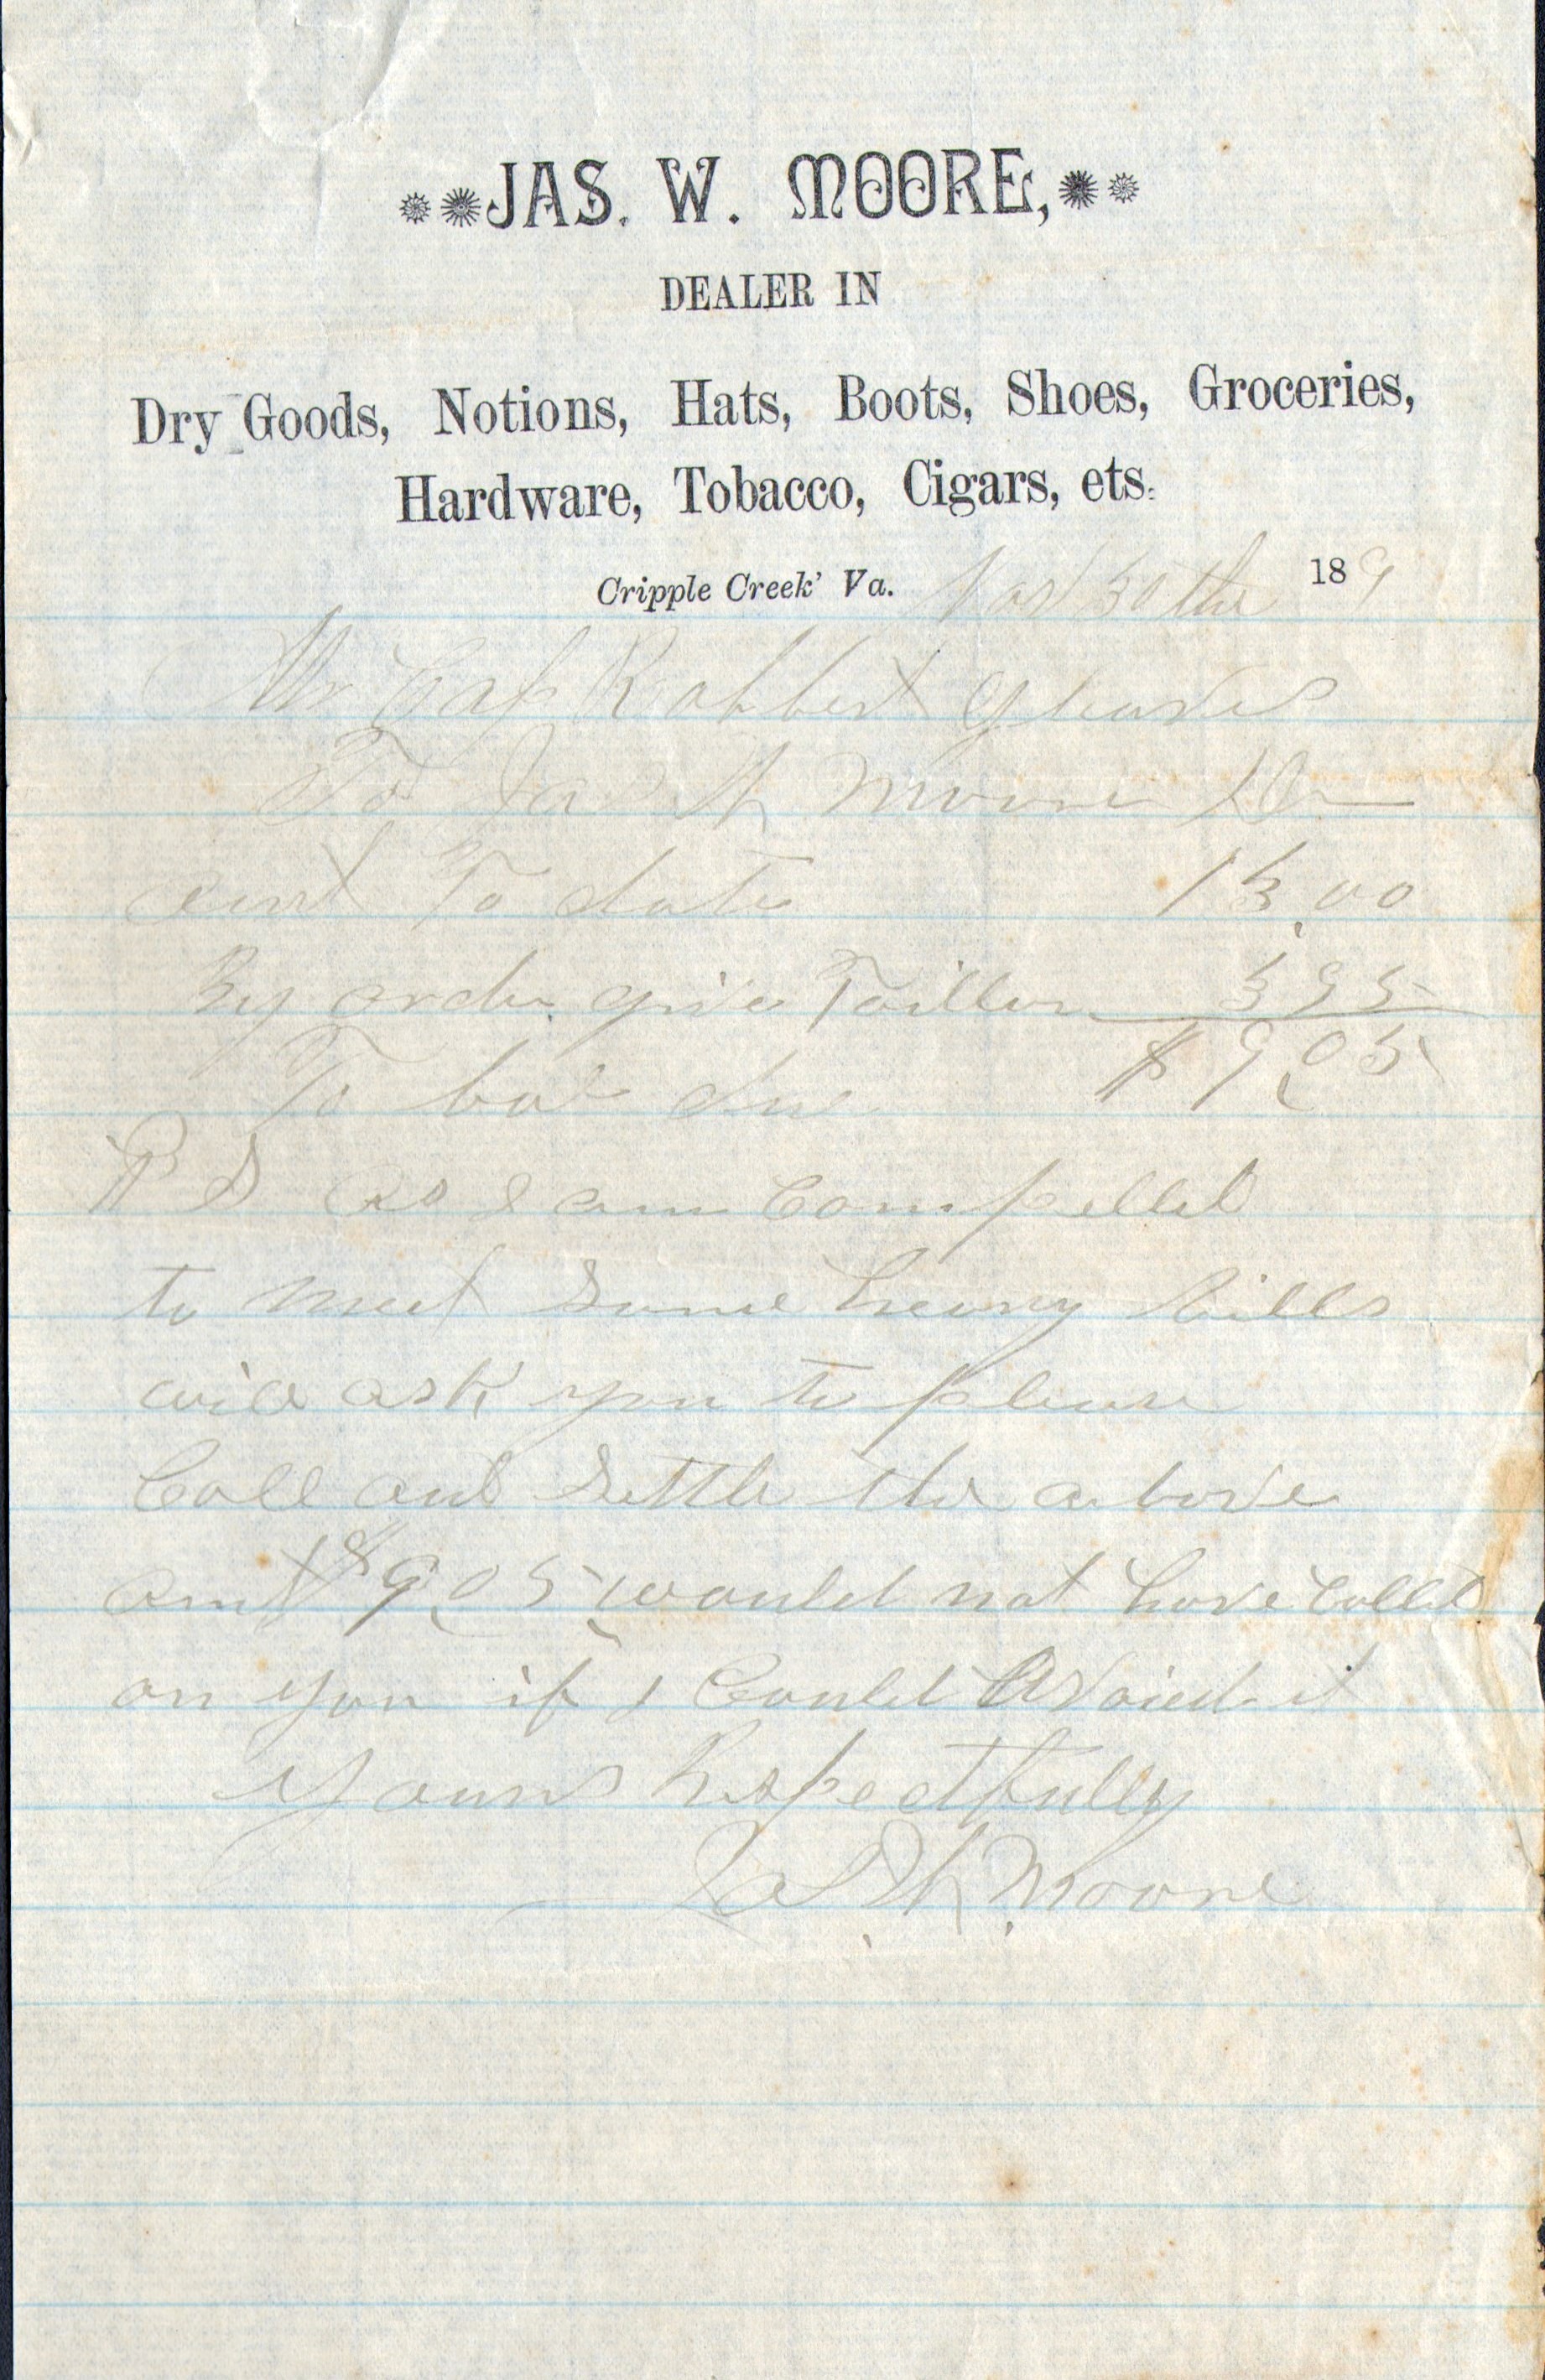 JAS. W. MOORE,
DEALER IN
Dry Goods, Notions, Hats, Boots, Shoes, Groceries,
Hardware, Tobacco, Cigars, ets.
Cripple Creek' Va. Nov 30 the 189
Mr Cap Robbert Gleaves
To Jas W Moore Dr
amt To date 13.00
By order give 395
To bal due $ 9.05
P S as I am Compelled
to meet Some heavy bills
will ask you to please
Call and Settle the above
amt $9.05 would not have Calld
on you if I Could Avoied it
Yours Respectfully
Jas W Moore